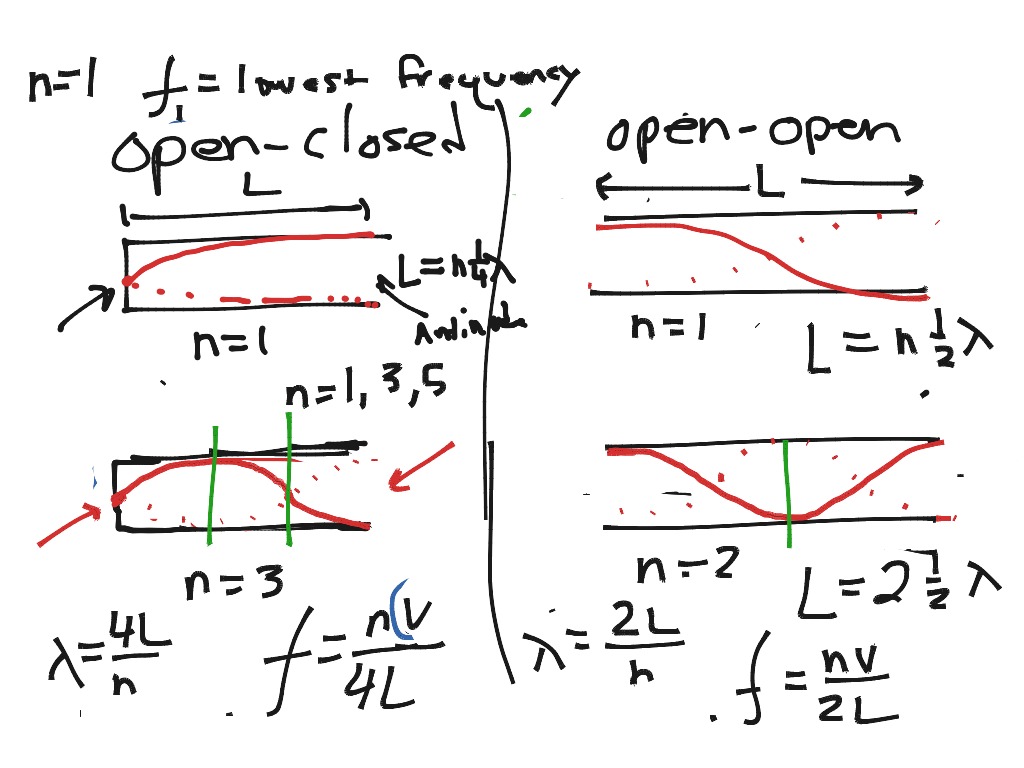 n=1 f₁ = lowest frequency
open-closed
L
L = n 1/4 λ
Antinode
n=1
n=1, 3, 5
n = 3
λ = 4L/n
f = n(V/4L
open-open
L
n=1
L = n 1/2 λ
n=2
L = 2 1/2 λ
λ = 2L/n
f = nV/2L